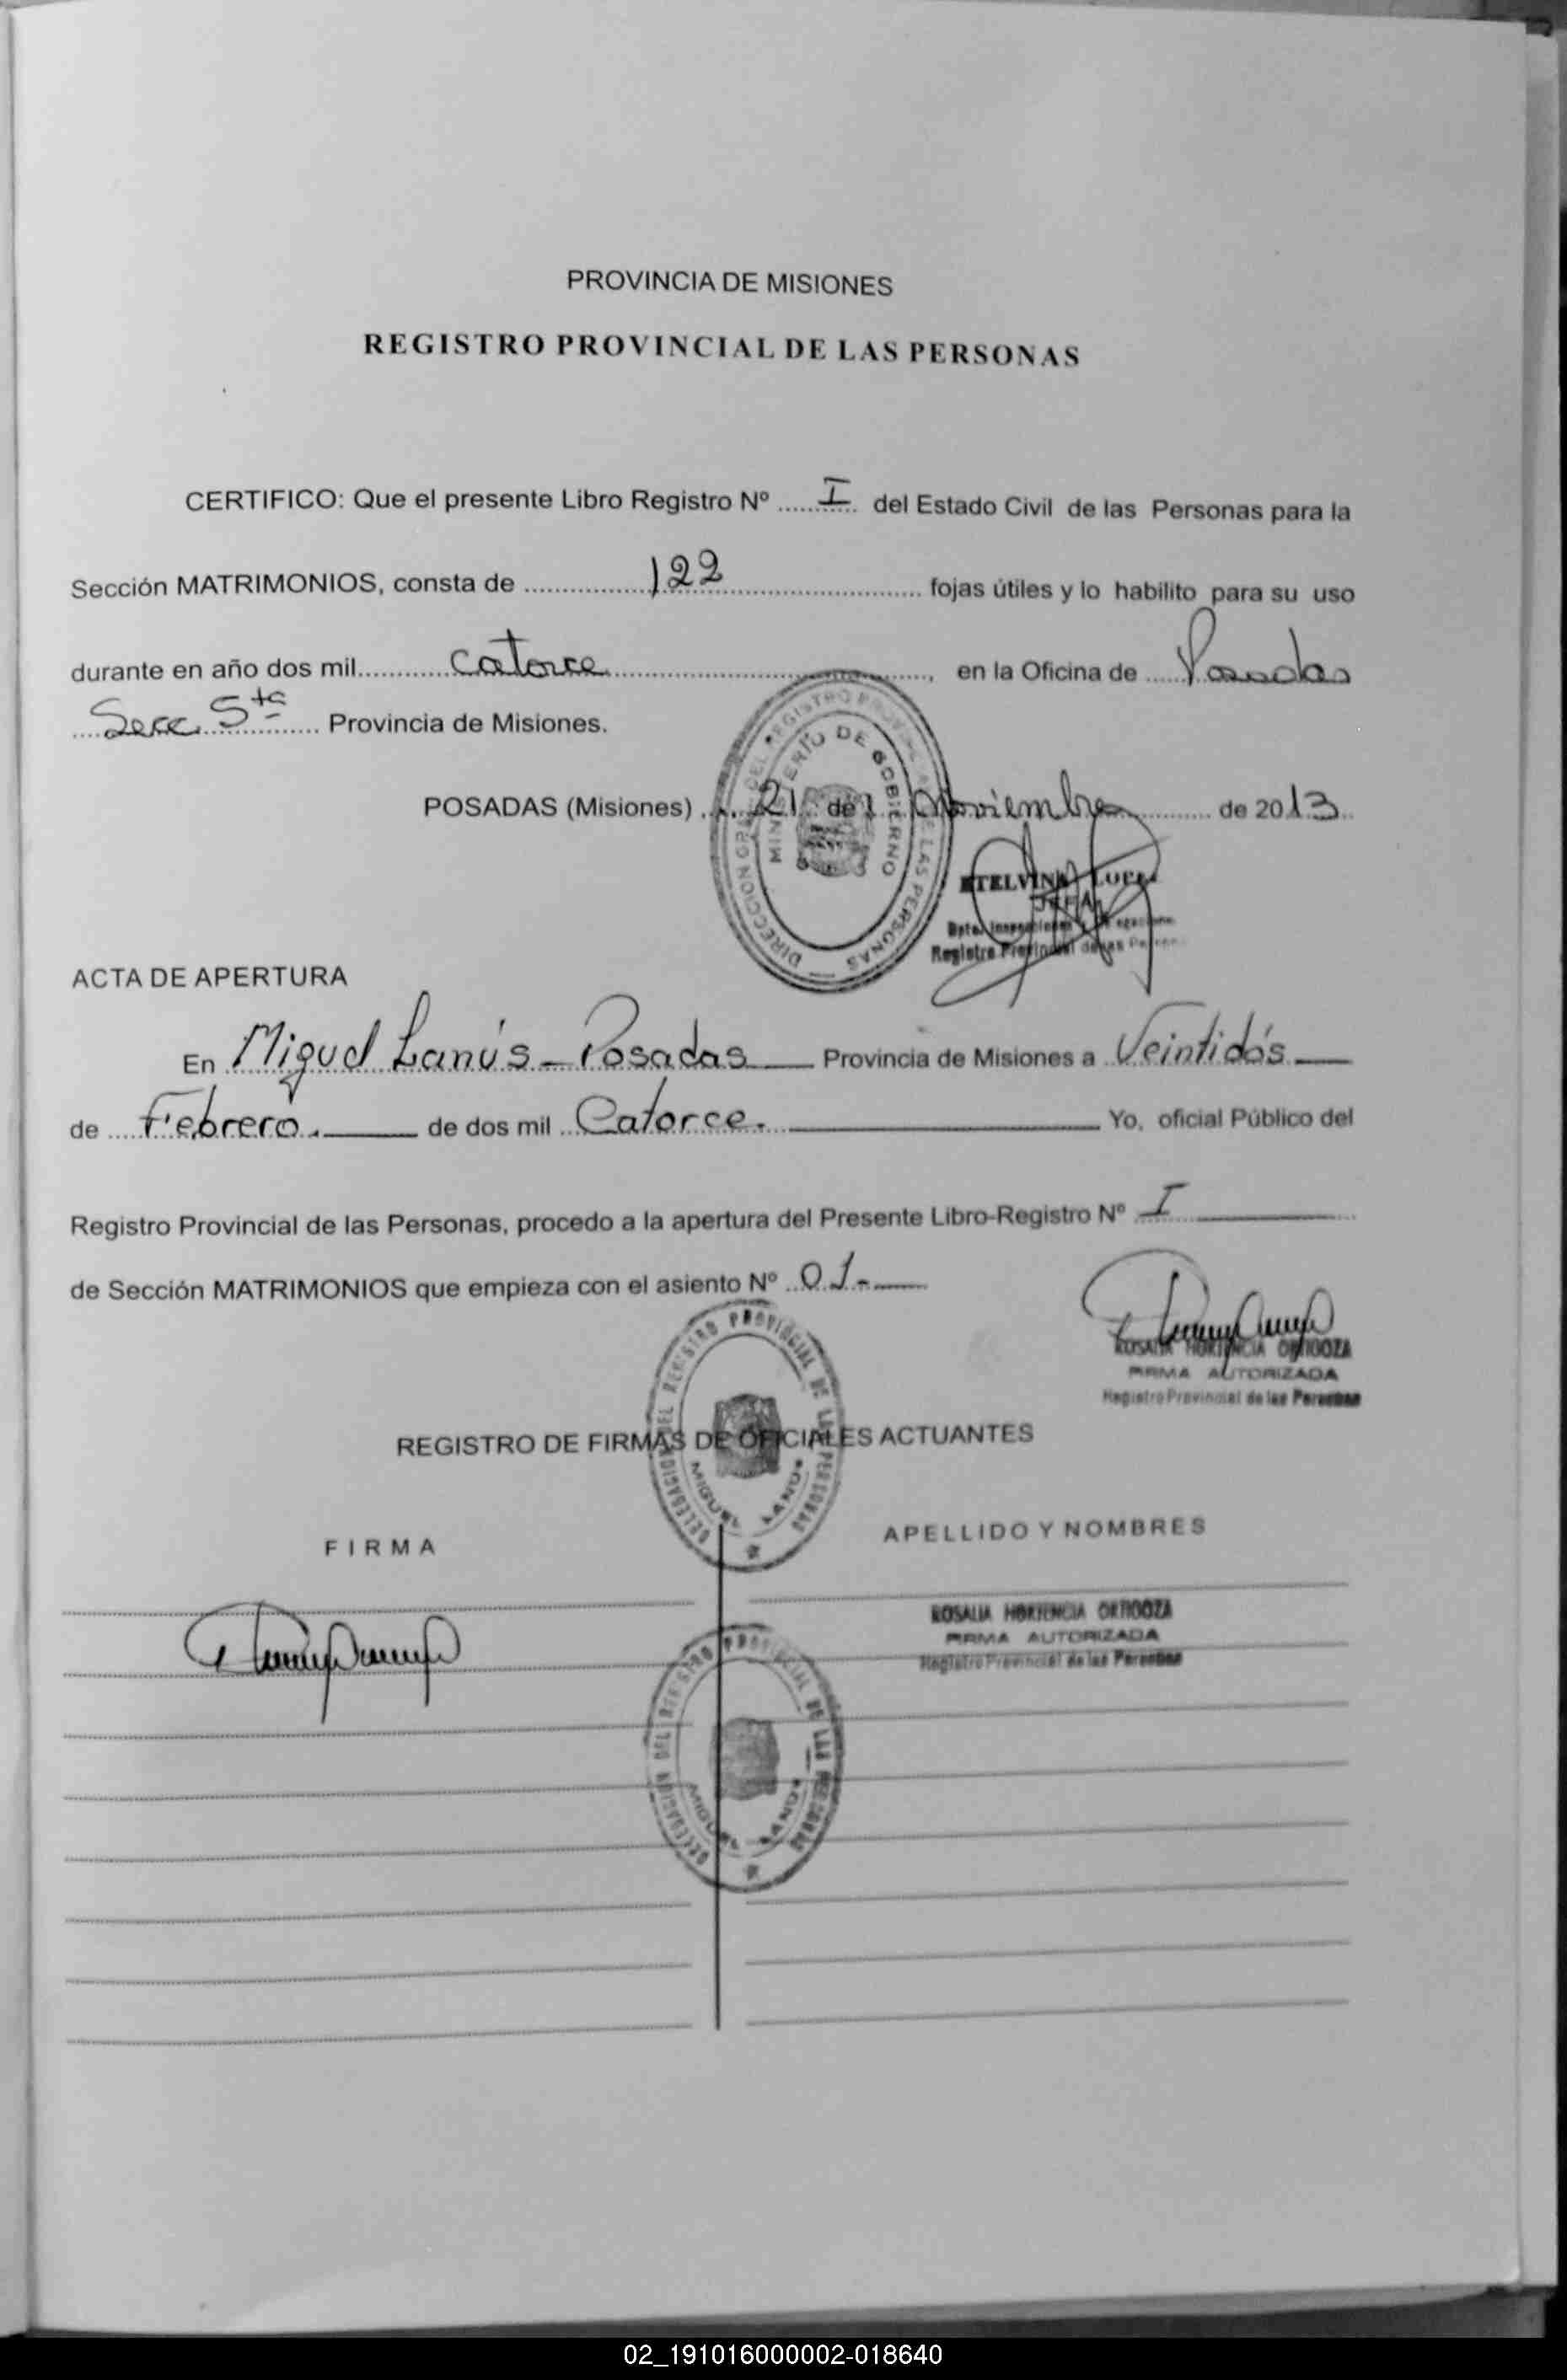 PROVINCIA DE MISIONES
REGISTRO PROVINCIAL DE LAS PERSONAS
CERTIFICO: Que el presente Libro Registro Nº I del Estado Civil de las Personas para la
Sección MATRIMONIOS, consta de 122 fojas útiles y lo habilito para su uso
durante en año dos mil catorce, en la Oficina de Posadas
Secc. 5ta Provincia de Misiones.
POSADAS (Misiones) 21 de Noviembre de 2013
DIRECCION GRAL DEL REGISTRO PROVINCIAL DE LAS PERSONAS
MINISTERIO DE GOBIERNO
ETELVINA
JEFA
Registro Provincial de las
ACTA DE APERTURA
En Miguel Lanús - Posadas Provincia de Misiones a Veintidós
de Febrero. de dos mil Catorce. Yo, oficial Público del
Registro Provincial de las Personas, procedo a la apertura del Presente Libro-Registro Nº I
de Sección MATRIMONIOS que empieza con el asiento Nº 01.-
ROSALIA HORTENCIA ORTIGOZA
FIRMA AUTORIZADA
Registro Provincial de las Personas
DELEGACION DEL REGISTRO PROVINCIAL DE LAS PERSONAS
MIGUEL LANUS
REGISTRO DE FIRMAS DE OFICIALES ACTUANTES
FIRMA APELLIDO Y NOMBRES
ROSALIA HORTENCIA ORTIGOZA
FIRMA AUTORIZADA
Registro Provincial de las Personas
DELEGACION DEL REGISTRO PROVINCIAL DE LAS PERSONAS
MIGUEL LANUS
02_191016000002-018640